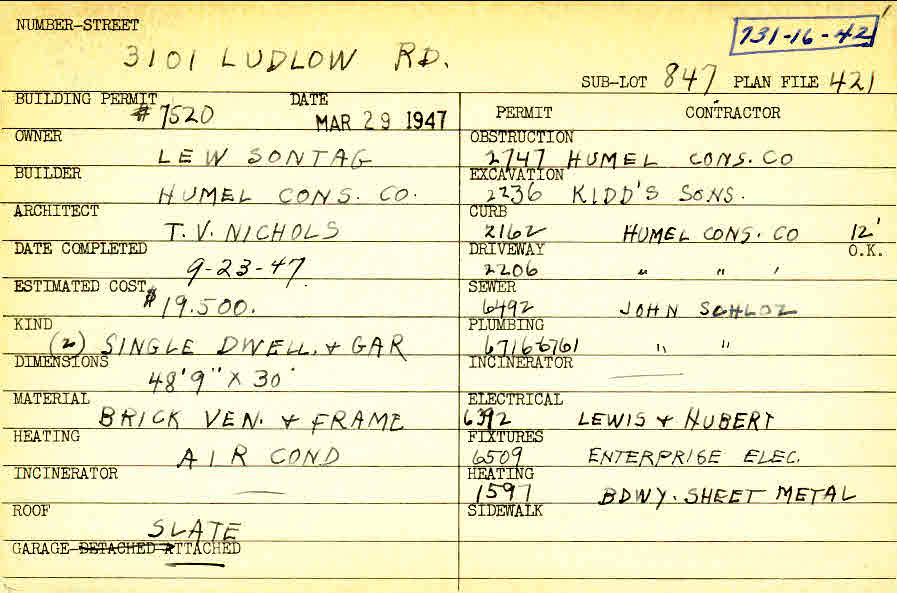 NUMBER-STREET
3101 LUDLOW RD.
731-16-42
SUB-LOT 847 PLAN FILE 421
BUILDING PERMIT DATE
#7520 MAR 29 1947
OWNER
LEW SONTAG
BUILDER
HUMEL CONS. CO.
ARCHITECT
T.V. NICHOLS
DATE COMPLETED
9-23-47
ESTIMATED COST
$19.500.
KIND
(2) SINGLE DWELL. & GAR
DIMENSIONS
48'9" X 30'
MATERIAL
BRICK VEN. & FRAME
HEATING
AIR COND
INCINERATOR
ROOF
SLATE
GARAGE-DETACHED ATTACHED
PERMIT CONTRACTOR
OBSTRUCTION
2747 HUMEL CONS. CO
EXCAVATION
2236 KIDD'S SONS.
CURB
2162 HUMEL CONS. CO 12'
DRIVEWAY O.K.
2206 " " '
SEWER
6492 JOHN SCHLOZ
PLUMBING
6716 & 6761 " "
INCINERATOR
ELECTRICAL
6392 LEWIS & HUBERT
FIXTURES
6509 ENTERPRISE ELEC.
HEATING
1597 BDWY. SHEET METAL
SIDEWALK